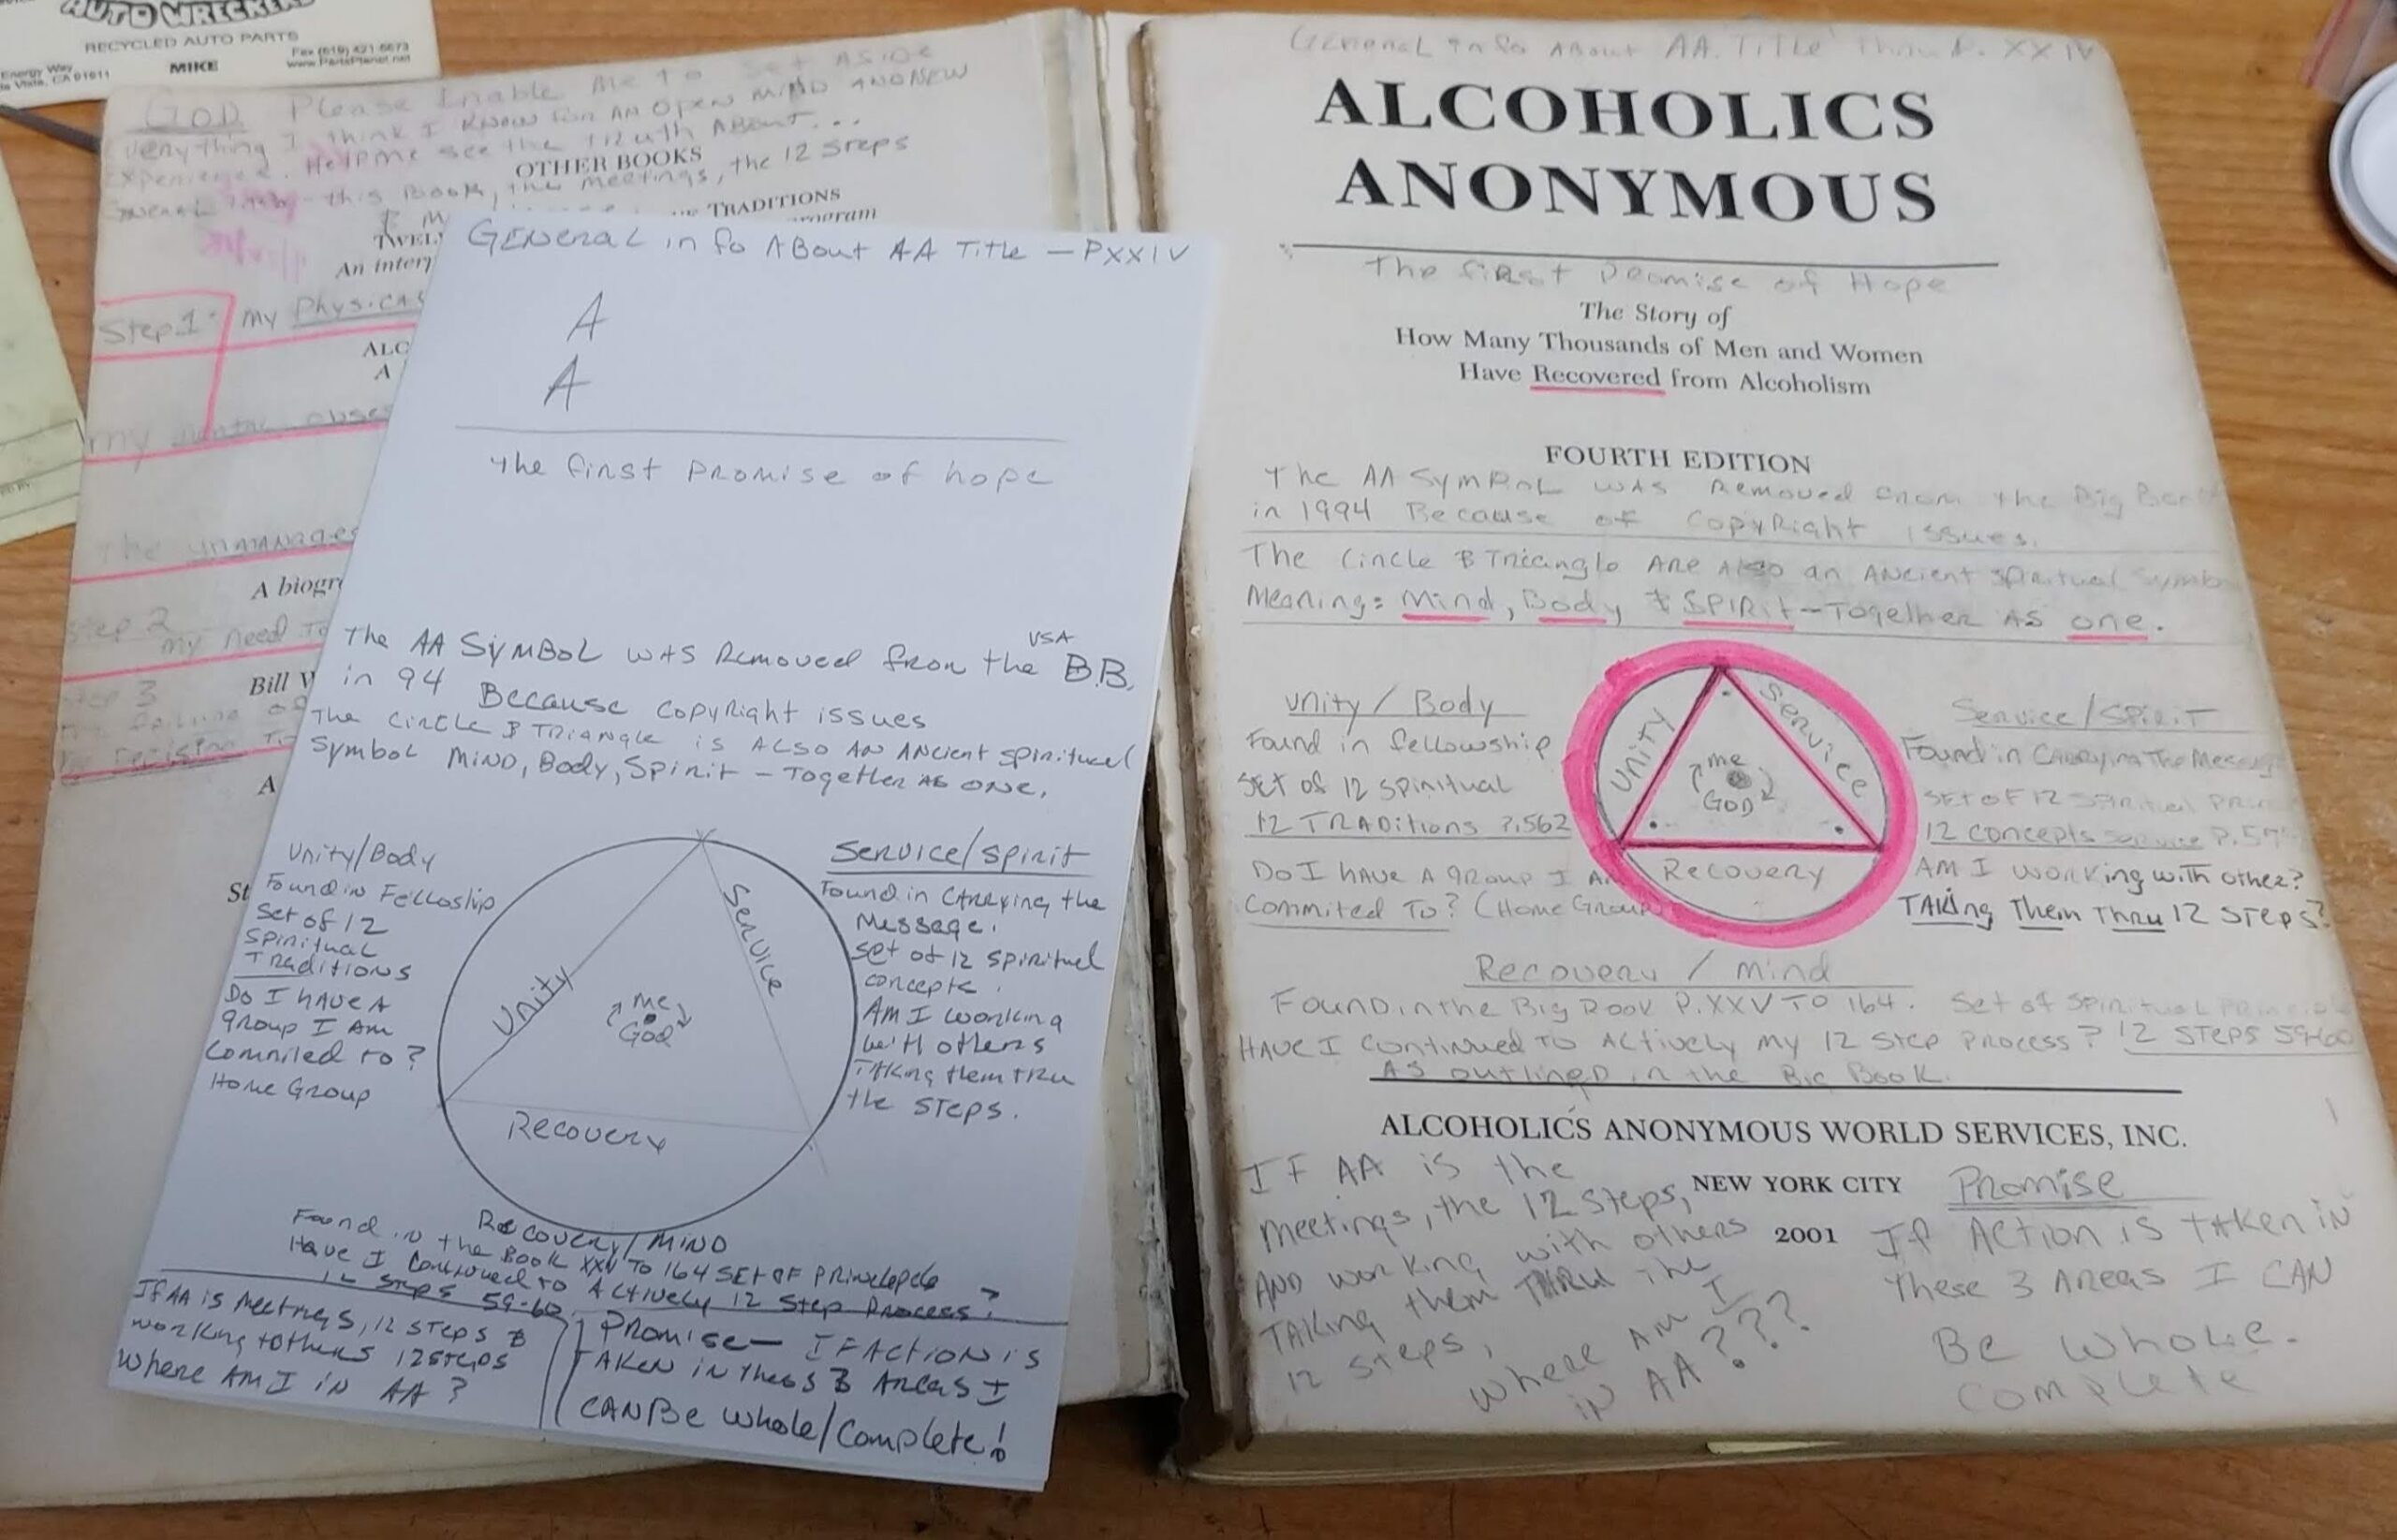 AUTO WRECKERS
RECYCLED AUTO PARTS
Fax (619) 421-6673
www.PartsPlanet.net
MIKE
Energy Way
CA 91911
GOD Please Enable me to set ASIDE
Everything I think I KNOW for AN OPEN MIND AND NEW
Experience. Help me see the truth About...
OTHER BOOKS
this Book, the meetings, the 12 steps
TRADITIONS
TWEL
program
An interp
Step 1: my Physical
ALC
A
my mental obses
The unmanage
A biogr
Step 2
my need to
Step 3
Bill W
A
St
GENERAL info ABout AA Title - PXXIV
A
A
the first PROMISE of hope
The AA SYMBOL WAS Removed from the USA B.B.
in 94 Because copyRight issues
The CIRCLE & TRIANGLE is ALSO AN ANCIENT SPIRITUAL
Symbol MIND, Body, Spirit - Together AS ONE.
Unity/Body
Found in Felloship
Set of 12
Spiritual
Traditions
Do I HAVE A
group I Am
Commited to?
Home Group
Unity
Service
me
God
Recovery
Service/Spirit
Found in CARRying the
Message.
set of 12 spiritual
concepts.
Am I working
with others
TAKing them TRU
the STEPS.
Recovery/MIND
Found in the Book XXV TO 164 SET OF
Have I Continued to Actively 12 Step Process?
12 Steps 59-60
If AA is Meetings, 12 STEPS &
working 12 steps
Where AM I iN AA?
Promise - IF Action is
TAKEN IN thes 3 AREAS I
CAN Be Whole/Complete!
General info About AA. Title Thru P. XXIV
ALCOHOLICS
ANONYMOUS
The first Promise of Hope
The Story of
How Many Thousands of Men and Women
Have Recovered from Alcoholism
FOURTH EDITION
The AA Symbol was Removed from the Big Book
in 1994 Because of CopyRight issues.
The Circle & Triangle Are Also an Ancient Spiritual Symbol
Meaning: Mind, Body, & SPIRit - Together AS one.
Unity / Body
Found in fellowship
set of 12 Spiritual
12 TRADitions P.562
Do I HAVE A group I Am
Commited To? (Home Group)
Unity
Service
me
GOD
Recovery
Service/Spirit
Found in CARRying The Message
SET OF 12 Spiritual
12 concepts service P.57
AM I working with other?
TAKing Them Thru 12 STEPS?
Recovery / mind
Found in the Big Book P. XXV TO 164. Set of Spiritual
HAVE I continued TO Actively my 12 Step Process? 12 STEPS 59-60
As outlined in the Big Book.
ALCOHOLICS ANONYMOUS WORLD SERVICES, INC.
NEW YORK CITY
2001
IF AA is the
meetings, the 12 Steps,
AND working with others
TAKing them THRU the
12 Steps,
where AM I
in AA???
Promise
If Action is TAKEN iN
these 3 AREAS I CAN
Be Whole.
Complete